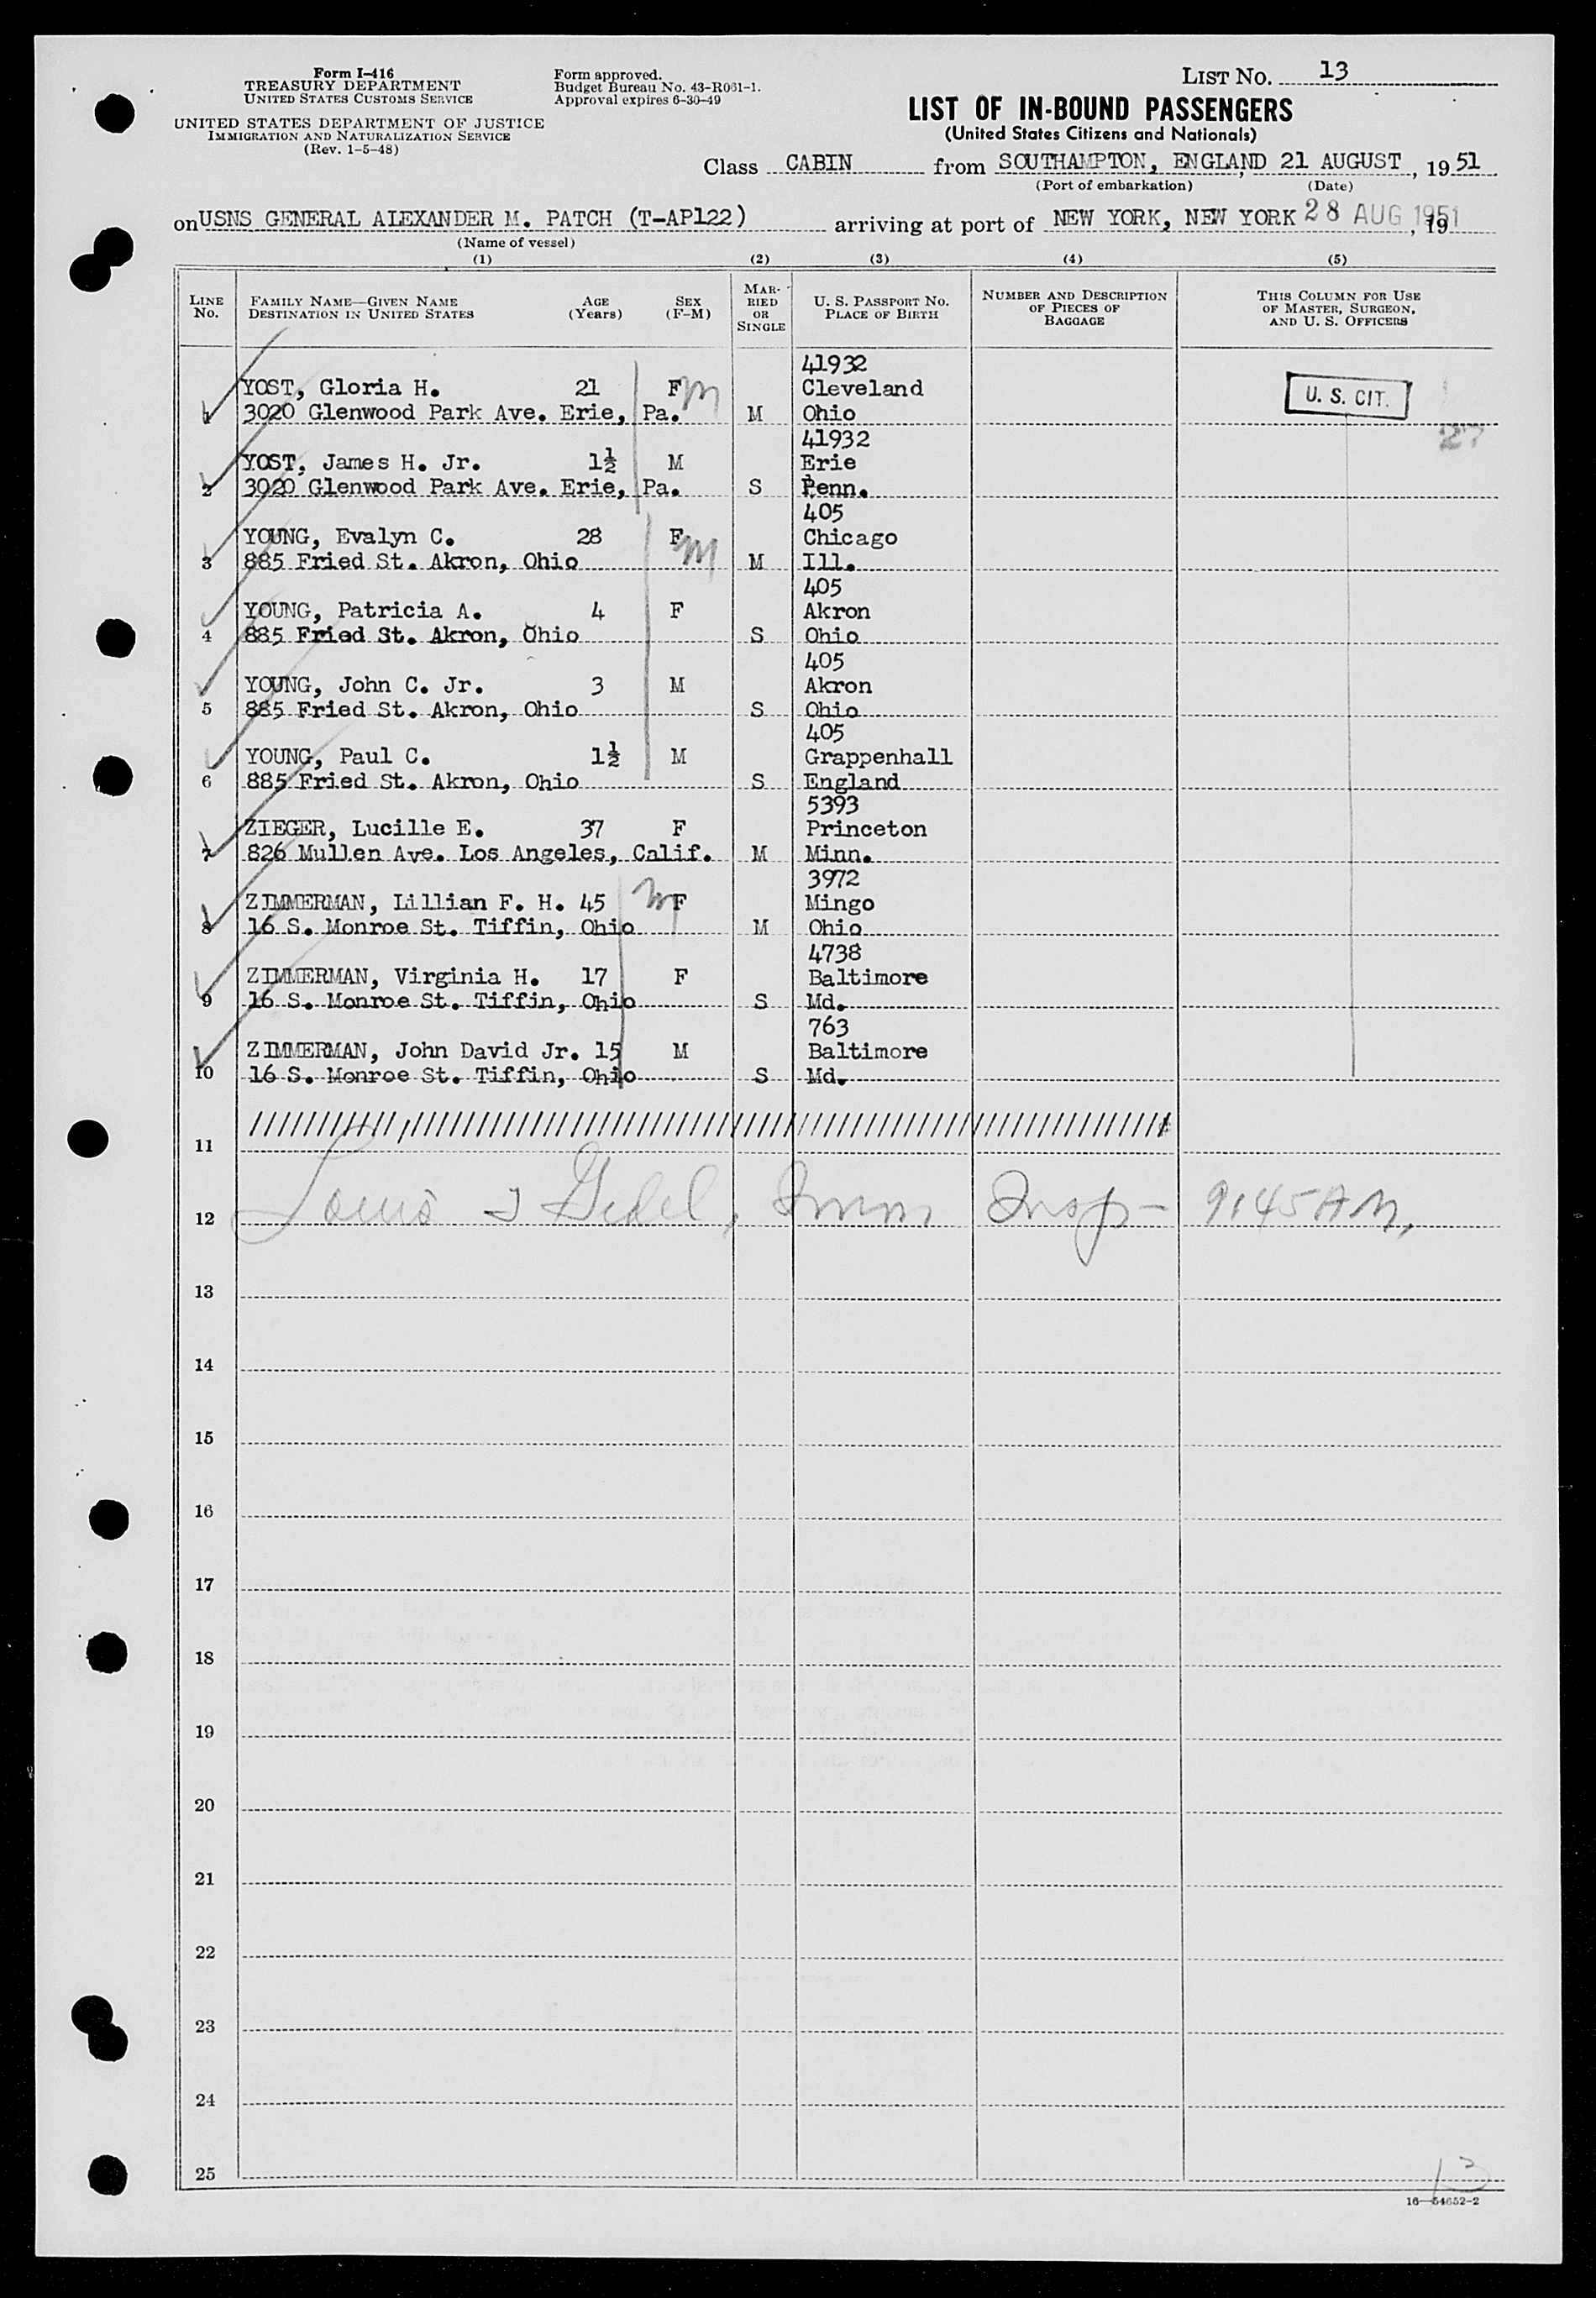 Form I-416
TREASURY DEPARTMENT
UNITED STATES CUSTOMS SERVICE
UNITED STATES DEPARTMENT OF JUSTICE
IMMIGRATION AND NATURALIZATION SERVICE
(Rev. 1-5-48)
Form approved.
Budget Bureau No. 43-R061-1.
Approval expires 6-30-49
LIST No. 13
LIST OF IN-BOUND PASSENGERS
(United States Citizens and Nationals)
Class CABIN from SOUTHAMPTON, ENGLAND 21 AUGUST, 1951
(Port of embarkation) (Date)
on USNS GENERAL ALEXANDER M. PATCH (T-AP122) arriving at port of NEW YORK, NEW YORK 28 AUG 1951, 19
(Name of vessel)
(1) (2) (3) (4) (5)
LINE No. FAMILY NAME—GIVEN NAME DESTINATION IN UNITED STATES AGE (Years) SEX (F-M) MARRIED OR SINGLE U. S. PASSPORT No. PLACE OF BIRTH NUMBER AND DESCRIPTION OF PIECES OF BAGGAGE THIS COLUMN FOR USE OF MASTER, SURGEON, AND U. S. OFFICERS
41932
YOST, Gloria H. 21 F m Cleveland U. S. CIT.
1 3020 Glenwood Park Ave. Erie, Pa. M Ohio
41932 27
YOST, James H. Jr. 1½ M Erie
2 3020 Glenwood Park Ave. Erie, Pa. S Penn.
405
YOUNG, Evalyn C. 28 F m Chicago
3 885 Fried St. Akron, Ohio M Ill.
405
YOUNG, Patricia A. 4 F Akron
4 885 Fried St. Akron, Ohio S Ohio
405
YOUNG, John C. Jr. 3 M Akron
5 885 Fried St. Akron, Ohio S Ohio
405
YOUNG, Paul C. 1½ M Grappenhall
6 885 Fried St. Akron, Ohio S England
5393
ZIEGER, Lucille E. 37 F Princeton
7 826 Mullen Ave. Los Angeles, Calif. M Minn.
3972
ZIMMERMAN, Lillian F. H. 45 m F Mingo
8 16 S. Monroe St. Tiffin, Ohio M Ohio
4738
ZIMMERMAN, Virginia H. 17 F Baltimore
9 16 S. Monroe St. Tiffin, Ohio S Md.
763
ZIMMERMAN, John David Jr. 15 M Baltimore
10 16 S. Monroe St. Tiffin, Ohio S Md.
11
12 Louis Imm Insp - 9:45 AM.
13
14
15
16
17
18
19
20
21
22
23
24
25
13
16—54652-2